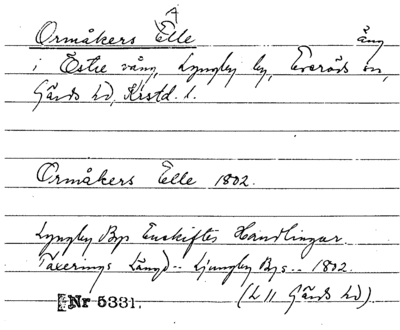 A
Ormåkers Elle äng
i Östre vång, Lyngby by, Everöds sn,
Gärds hd, Krstd. l.
Ormåkers Elle 1802.
Lyngby Bys Enskiftes Handlingar.
Taxerings Längd.. Ljungby Bys.. 1802.
(L 11 Gärds hd)
Nr 5331.